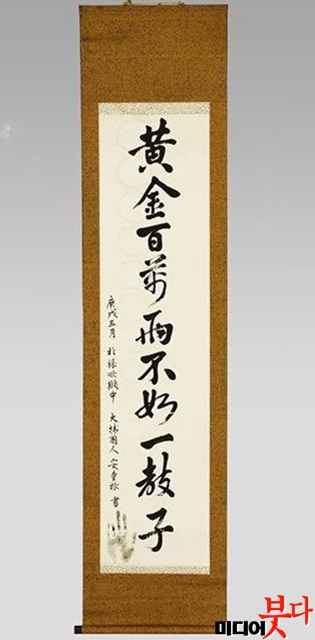 黄金百萬兩不如一敎子
庚戌三月 於旅順獄中 大韓國人 安重根 書
미디어붓다